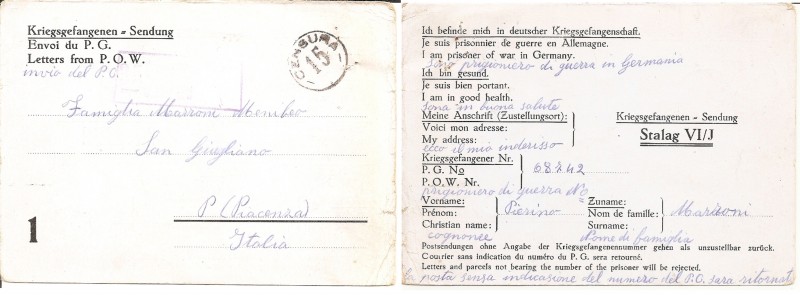 Kriegsgefangenen - Sendung
Envoi du P. G.
Letters from P. O. W.
invio del P.G.
CENSURA
Famiglia Marzoni Menibeo
San Giugliano
P (Piacenza)
Italia
1
Ich befinde mich in deutscher Kriegsgefangenschaft.
Je suis prisonnier de guerre en Allemagne.
I am prisoner of war in Germany.
sono prigioniero di guerra in Germania
Ich bin gesund.
Je suis bien portant.
I am in good health.
sona in buona salute
Meine Anschrift (Zustellungsort):
Voici mon adresse:
My address:
ecco il mio inderisso
Kriegsgefangenen - Sendung
Stalag VI/J
Kriegsgefangener Nr.
P. G. No
P. O. W. Nr.
68742
prigioniero di guerra No
Vorname:
Prénom:
Christian name:
Pierino
cognonee
Zuname:
Nom de famille:
Surname:
Nome di famiglia
Postsendungen ohne Angabe der Kriegsgefangenennummer gehen als unzustellbar zurück.
Courier sans indication du numéro du P. G. sera retourné.
Letters and parcels not bearing the number of the prisoner will be rejected.
la posta sensa indicasione del numero del P.G. sara ritornat